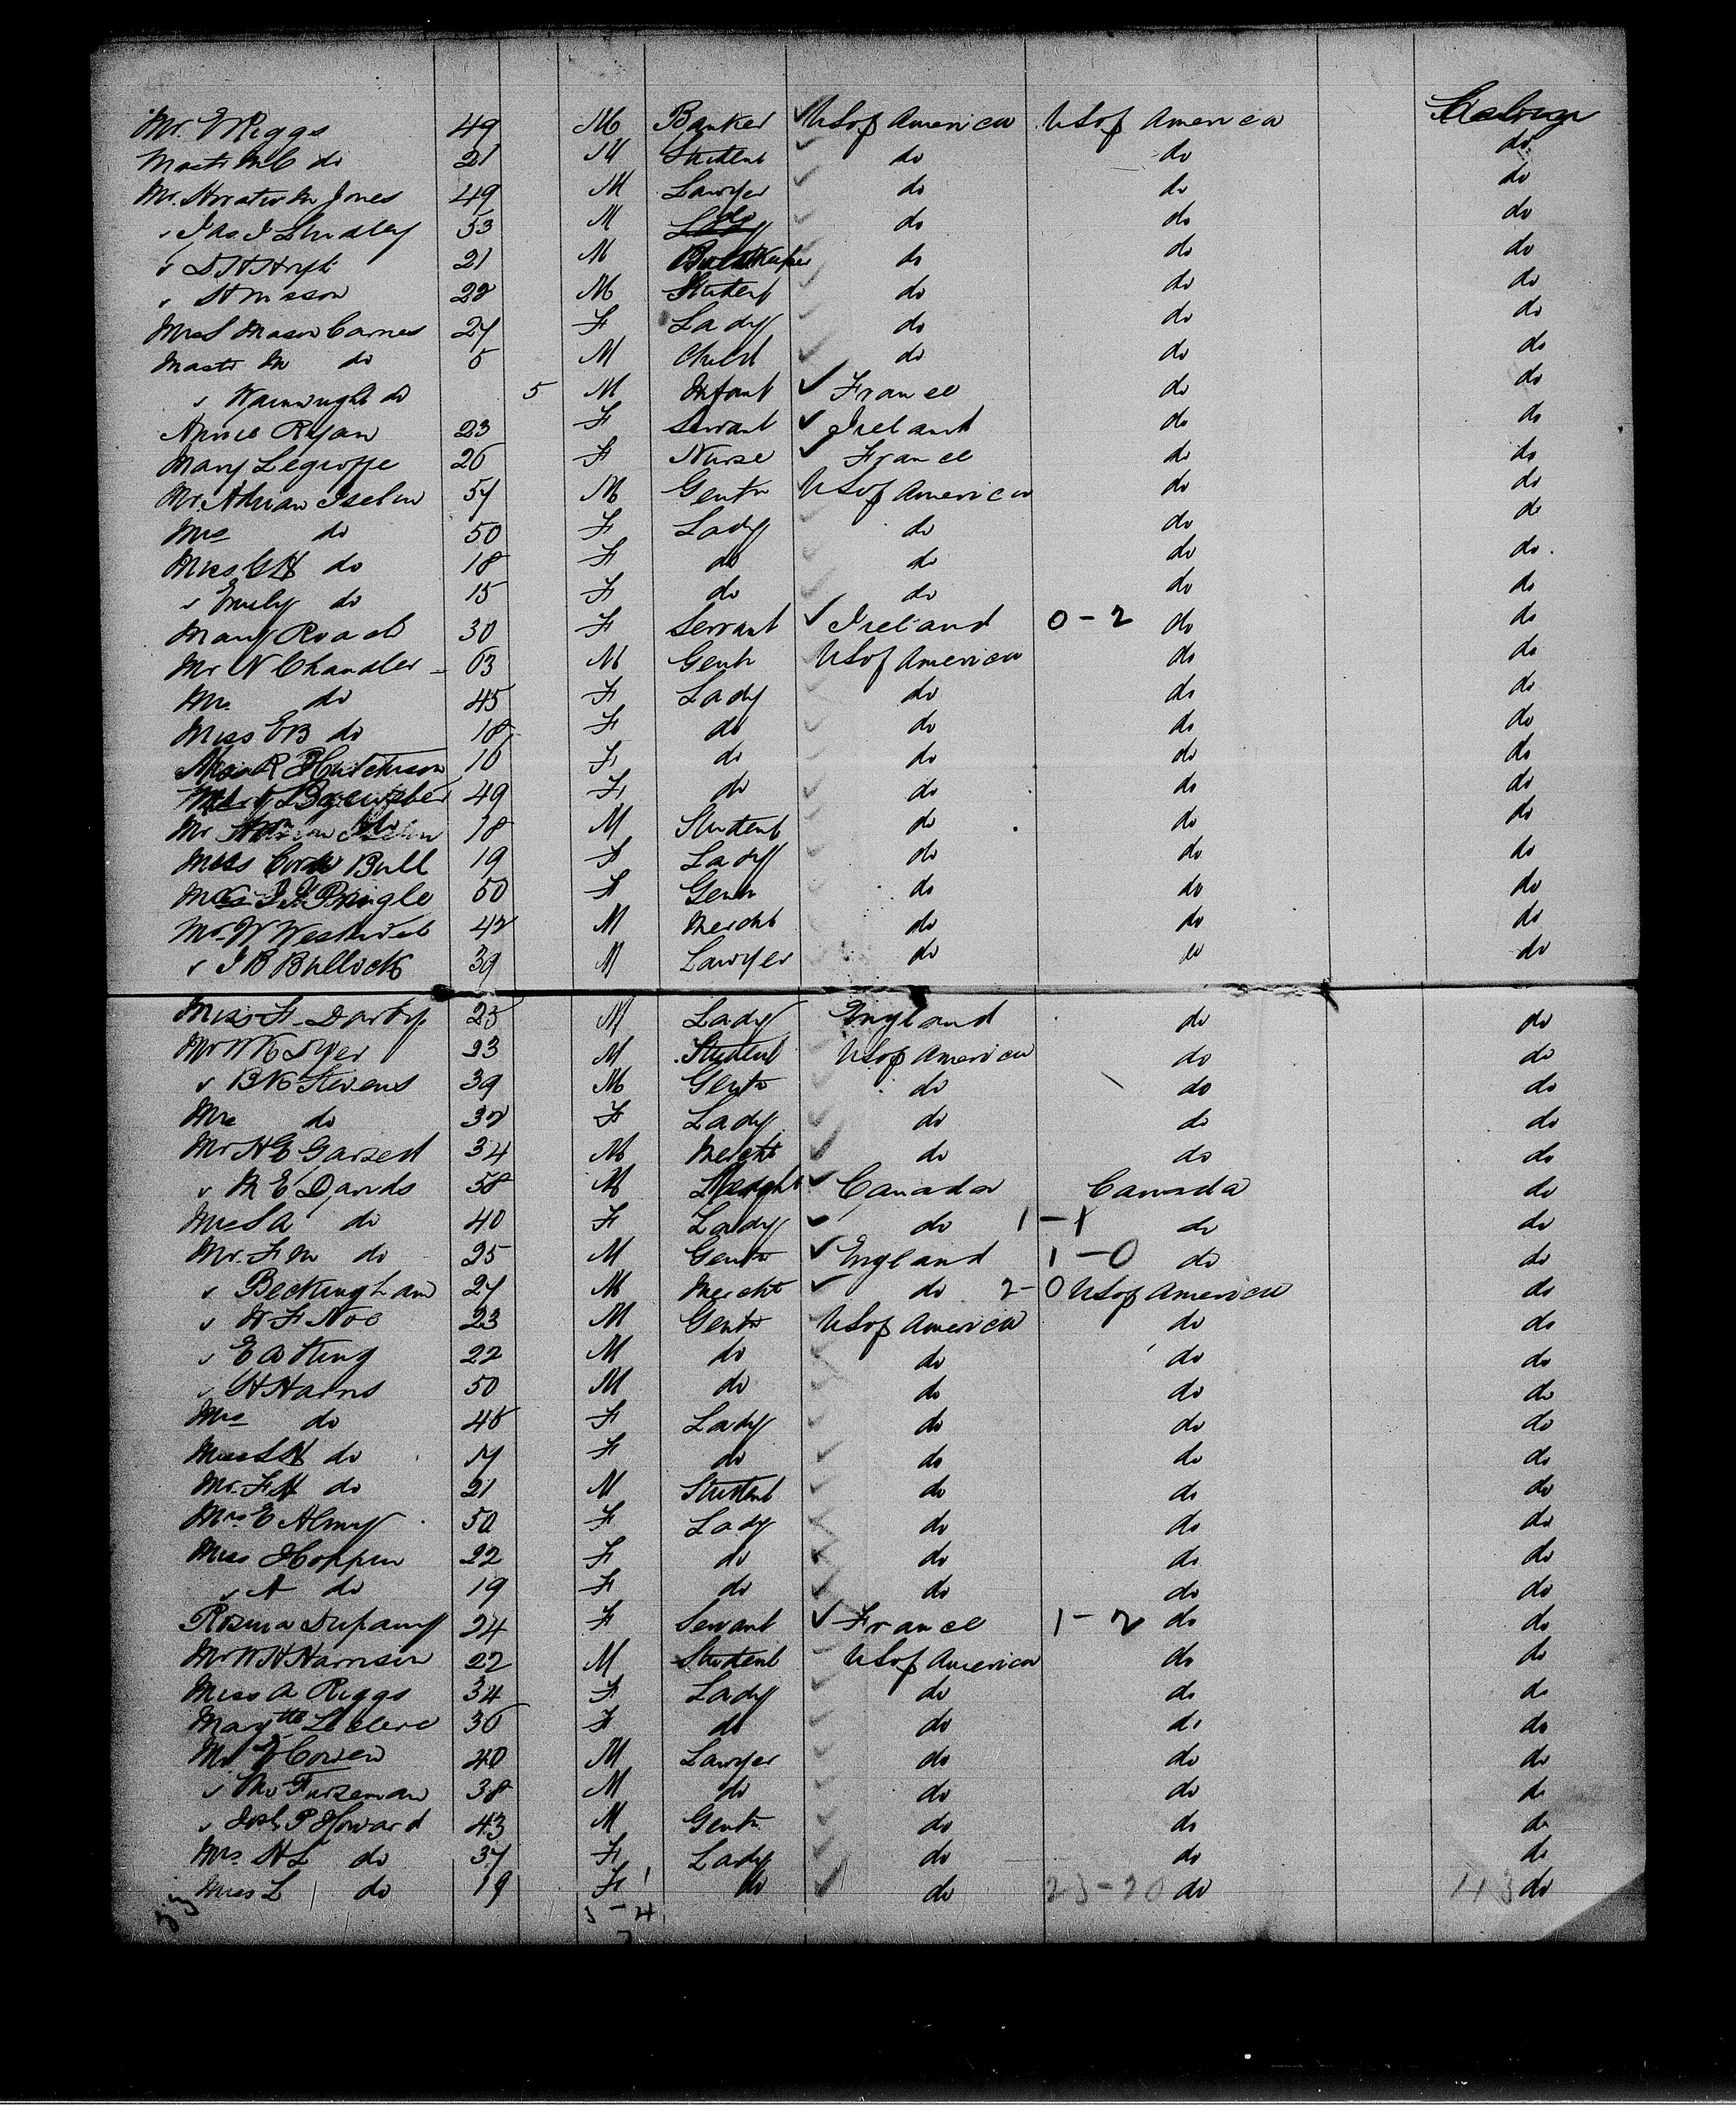 Mr. E Riggs 49 M Banker USof America USof America Cabin
Mastr M C do 21 M Student do do do
Mr. Horatio M Jones 49 M Lawyer do do do
" Jas J Lindley 53 M do do do do
" D H 21 M Bookkeeper do do do
" 22 M Student do do do
Mrs S Mason Carnes 27 F Lady do do do
Mastr M do 5 M Child do do do
" Wainwright do 5 M Infant France do do
Annie Ryan 23 F Servant Ireland do do
Mary Legroffe 26 F Nurse France do do
Mr. Adrian Iselin 57 M Gentn USof America do do
Mrs do 50 F Lady do do do
Miss G H do 18 F do do do do
" Emily do 15 F do do do do
Mary Roach 30 F Servant Ireland 0-2 do do
Mr N Chandler 63 M Gentn USof America do do
Mrs do 45 F Lady do do do
Miss E B do 18 F do do do do
Miss R Hutchison 16 F do do do do
49 F do do do do
Mr 18 M Student do do do
Miss Cora Bull 19 F Lady do do do
J J Pringle 50 F Gentn do do do
Mr. W 42 M Mercht do do do
" J B Bullock 39 M Lawyer do do do
Miss F. Darby 25 M Lady England do do
Mr W K Dyer 23 M Student USof America do do
" B K Stevens 39 M Gentn do do do
Mrs do 32 F Lady do do do
Mr H E Garsed 34 M Mercht do do do
" M E Davids 58 M Canada Canada do
Mrs S A do 40 F Lady do 1-1 do do
Mr. F M do 25 M Gentn England 1-0 do do
" Beckingham 27 M Mercht do 2-0 USof America do
" W F 23 M Gentn USof America do do
" E A King 22 M do do do do
" G H Harris 50 M do do do do
Mrs do 45 F Lady do do do
Miss S H do 17 F do do do do
Mr. F H do 21 M Student do do do
Mrs E Almy 50 F Lady do do do
Miss Hoppin 22 F do do do do
" A do 19 F do do do do
Rosina Dupany 24 F Servant France 1-2 do do
Mr W H Harrison 22 M Student USof America do do
Miss A Riggs 34 F Lady do do do
Leclere 36 F do do do do
Mr Cowen 40 M Lawyer do do do
" 38 M do do do do
" Josh P Howard 43 M Gentn do do do
Mrs. H L do 37 F Lady do do do
Miss L do 19 F do do 23-20 do 43 do